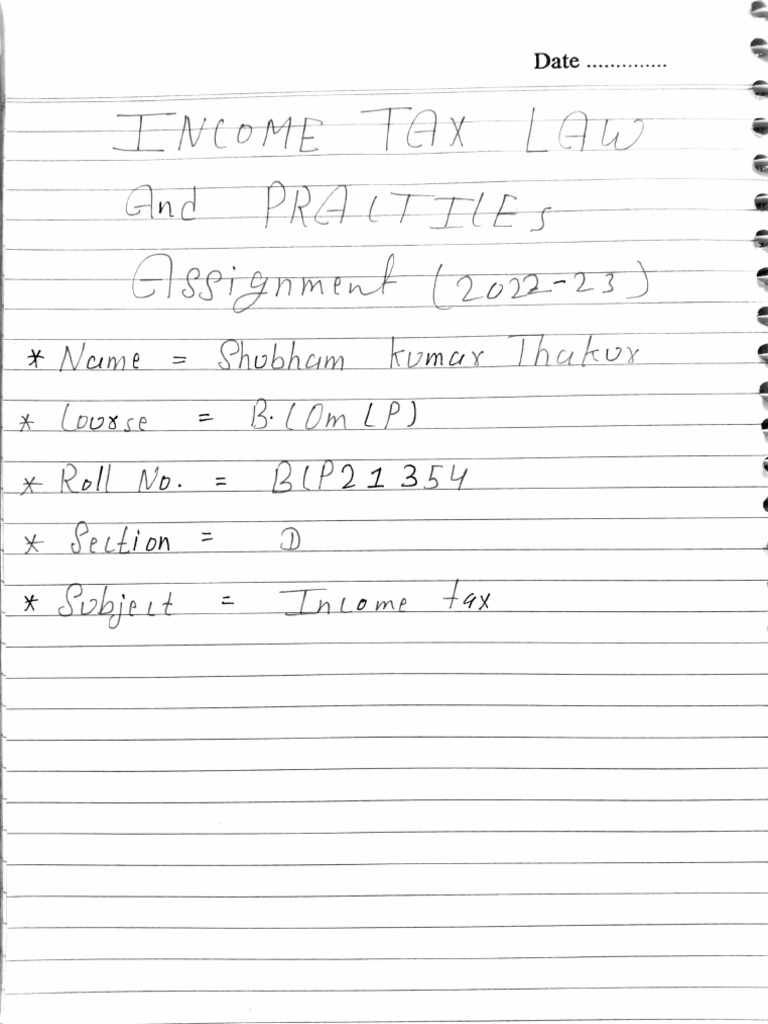 Date ..............
INCOME TAX LAW
And PRACTICES
Assignment (2022-23)
* Name = Shubham kumar Thakur
* Course = B.COm (P)
* Roll No. = BCP21354
* Section = D
* Subject = Income tax